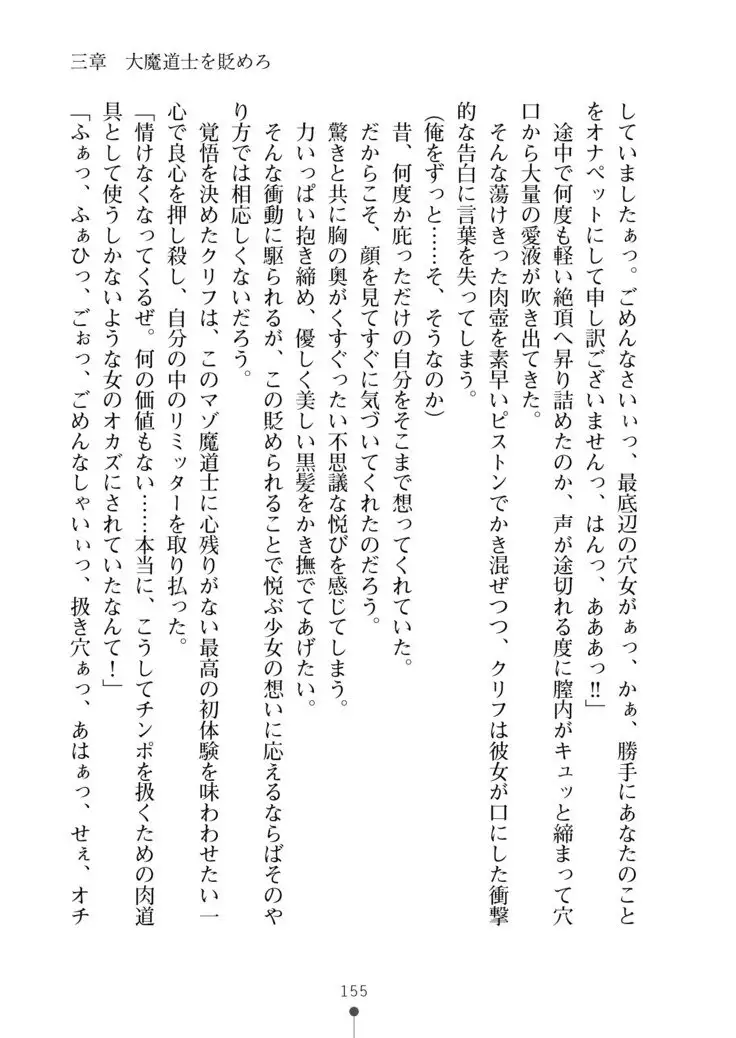 三章　大魔道士を貶めろ
していましたぁっ。ごめんなさいぃっ、最底辺の穴女がぁっ、かぁ、勝手にあなたのこと
をオナペットにして申し訳ございませんっ、はんっ、あああっ!!」
　途中で何度も軽い絶頂へ昇り詰めたのか、声が途切れる度に膣内がキュッと締まって穴
口から大量の愛液が吹き出てきた。
　そんな蕩けきった肉壺を素早いピストンでかき混ぜつつ、クリフは彼女が口にした衝撃
的な告白に言葉を失ってしまう。
(俺をずっと……そ、そうなのか)
　昔、何度か庇っただけの自分をそこまで想ってくれていた。
　だからこそ、顔を見てすぐに気づいてくれたのだろう。
　驚きと共に胸の奥がくすぐったい不思議な悦びを感じてしまう。
　力いっぱい抱き締め、優しく美しい黒髪をかき撫でてあげたい。
　そんな衝動に駆られるが、この貶められることで悦ぶ少女の想いに応えるならばそのや
り方では相応しくないだろう。
　覚悟を決めたクリフは、このマゾ魔道士に心残りがない最高の初体験を味わわせたい一
心で良心を押し殺し、自分の中のリミッターを取り払った。
「情けなくなってくるぜ。何の価値もない……本当に、こうしてチンポを扱くための肉道
具として使うしかないような女のオカズにされていたなんて！」
「ふぁっ、ふぁひっ、ごぉっ、ごめんなしゃいぃっ、扱き穴ぁっ、あはぁっ、せぇ、オチ
155